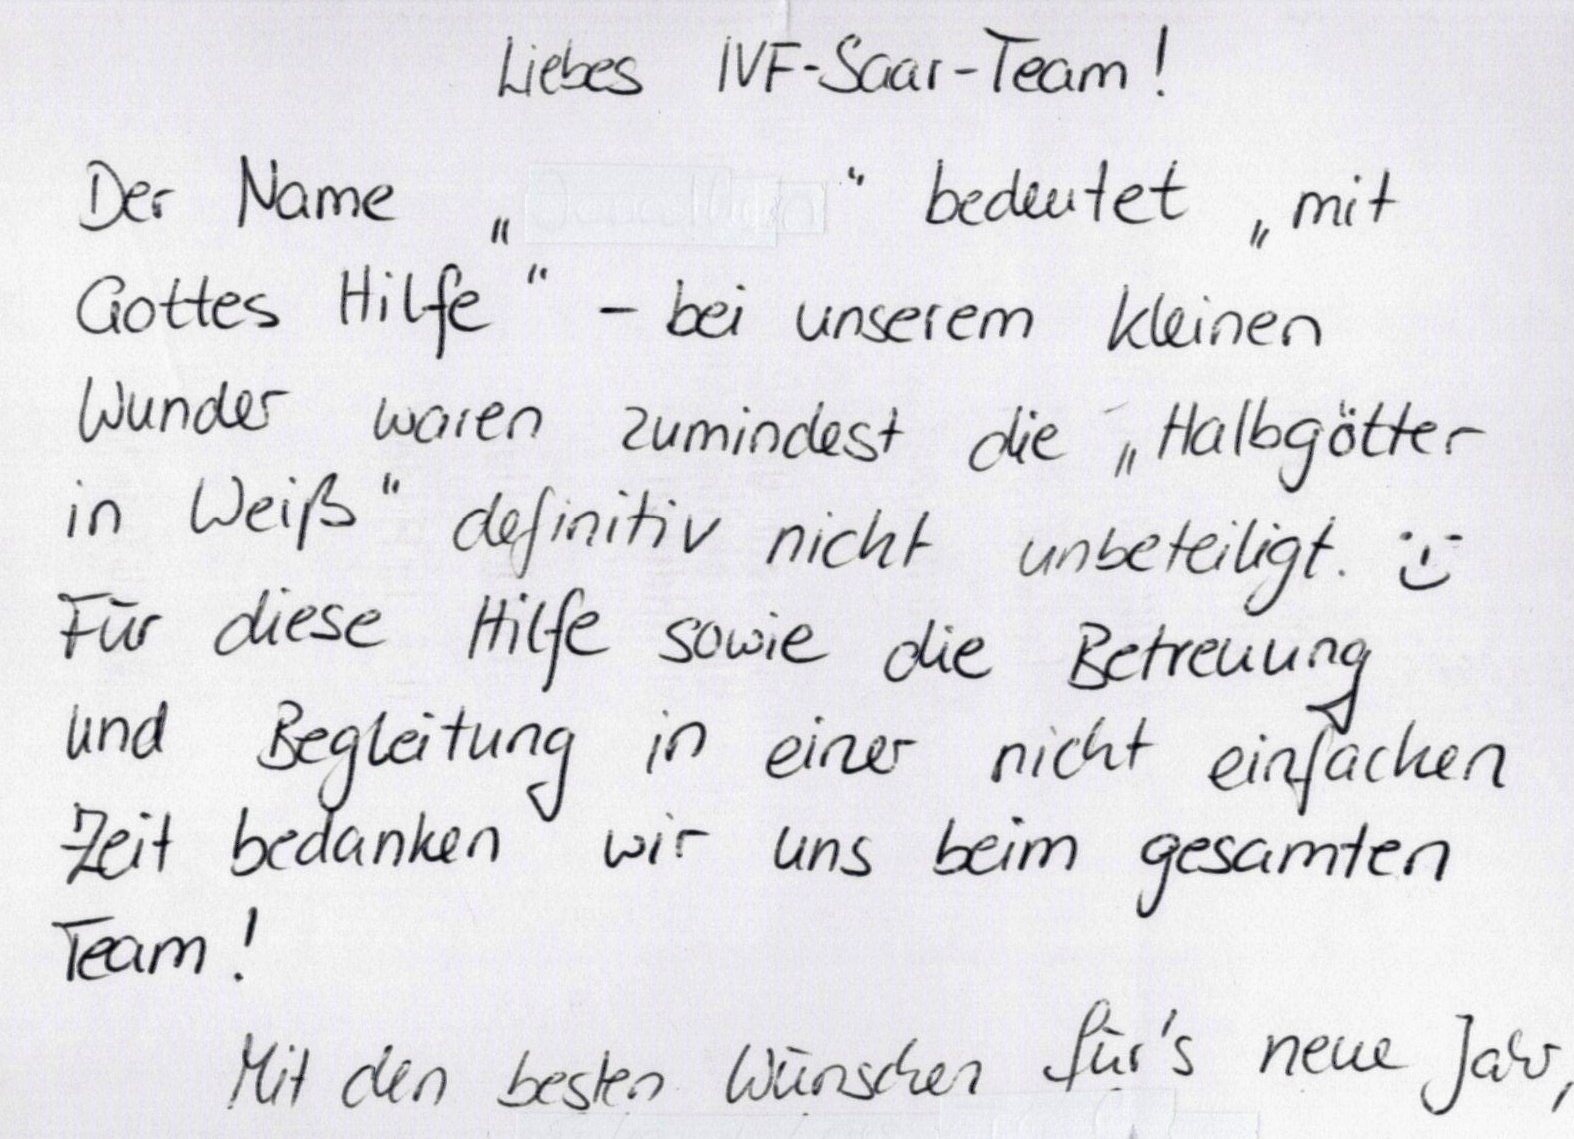 Liebes IVF-Saar-Team!
Der Name „ “ bedeutet „mit
Gottes Hilfe“ - bei unserem kleinen
Wunder waren zumindest die „Halbgötter
in Weiß“ definitiv nicht unbeteiligt. :-)
Für diese Hilfe sowie die Betreuung
und Begleitung in einer nicht einfachen
Zeit bedanken wir uns beim gesamten
Team!
Mit den besten Wünschen für's neue Jahr,